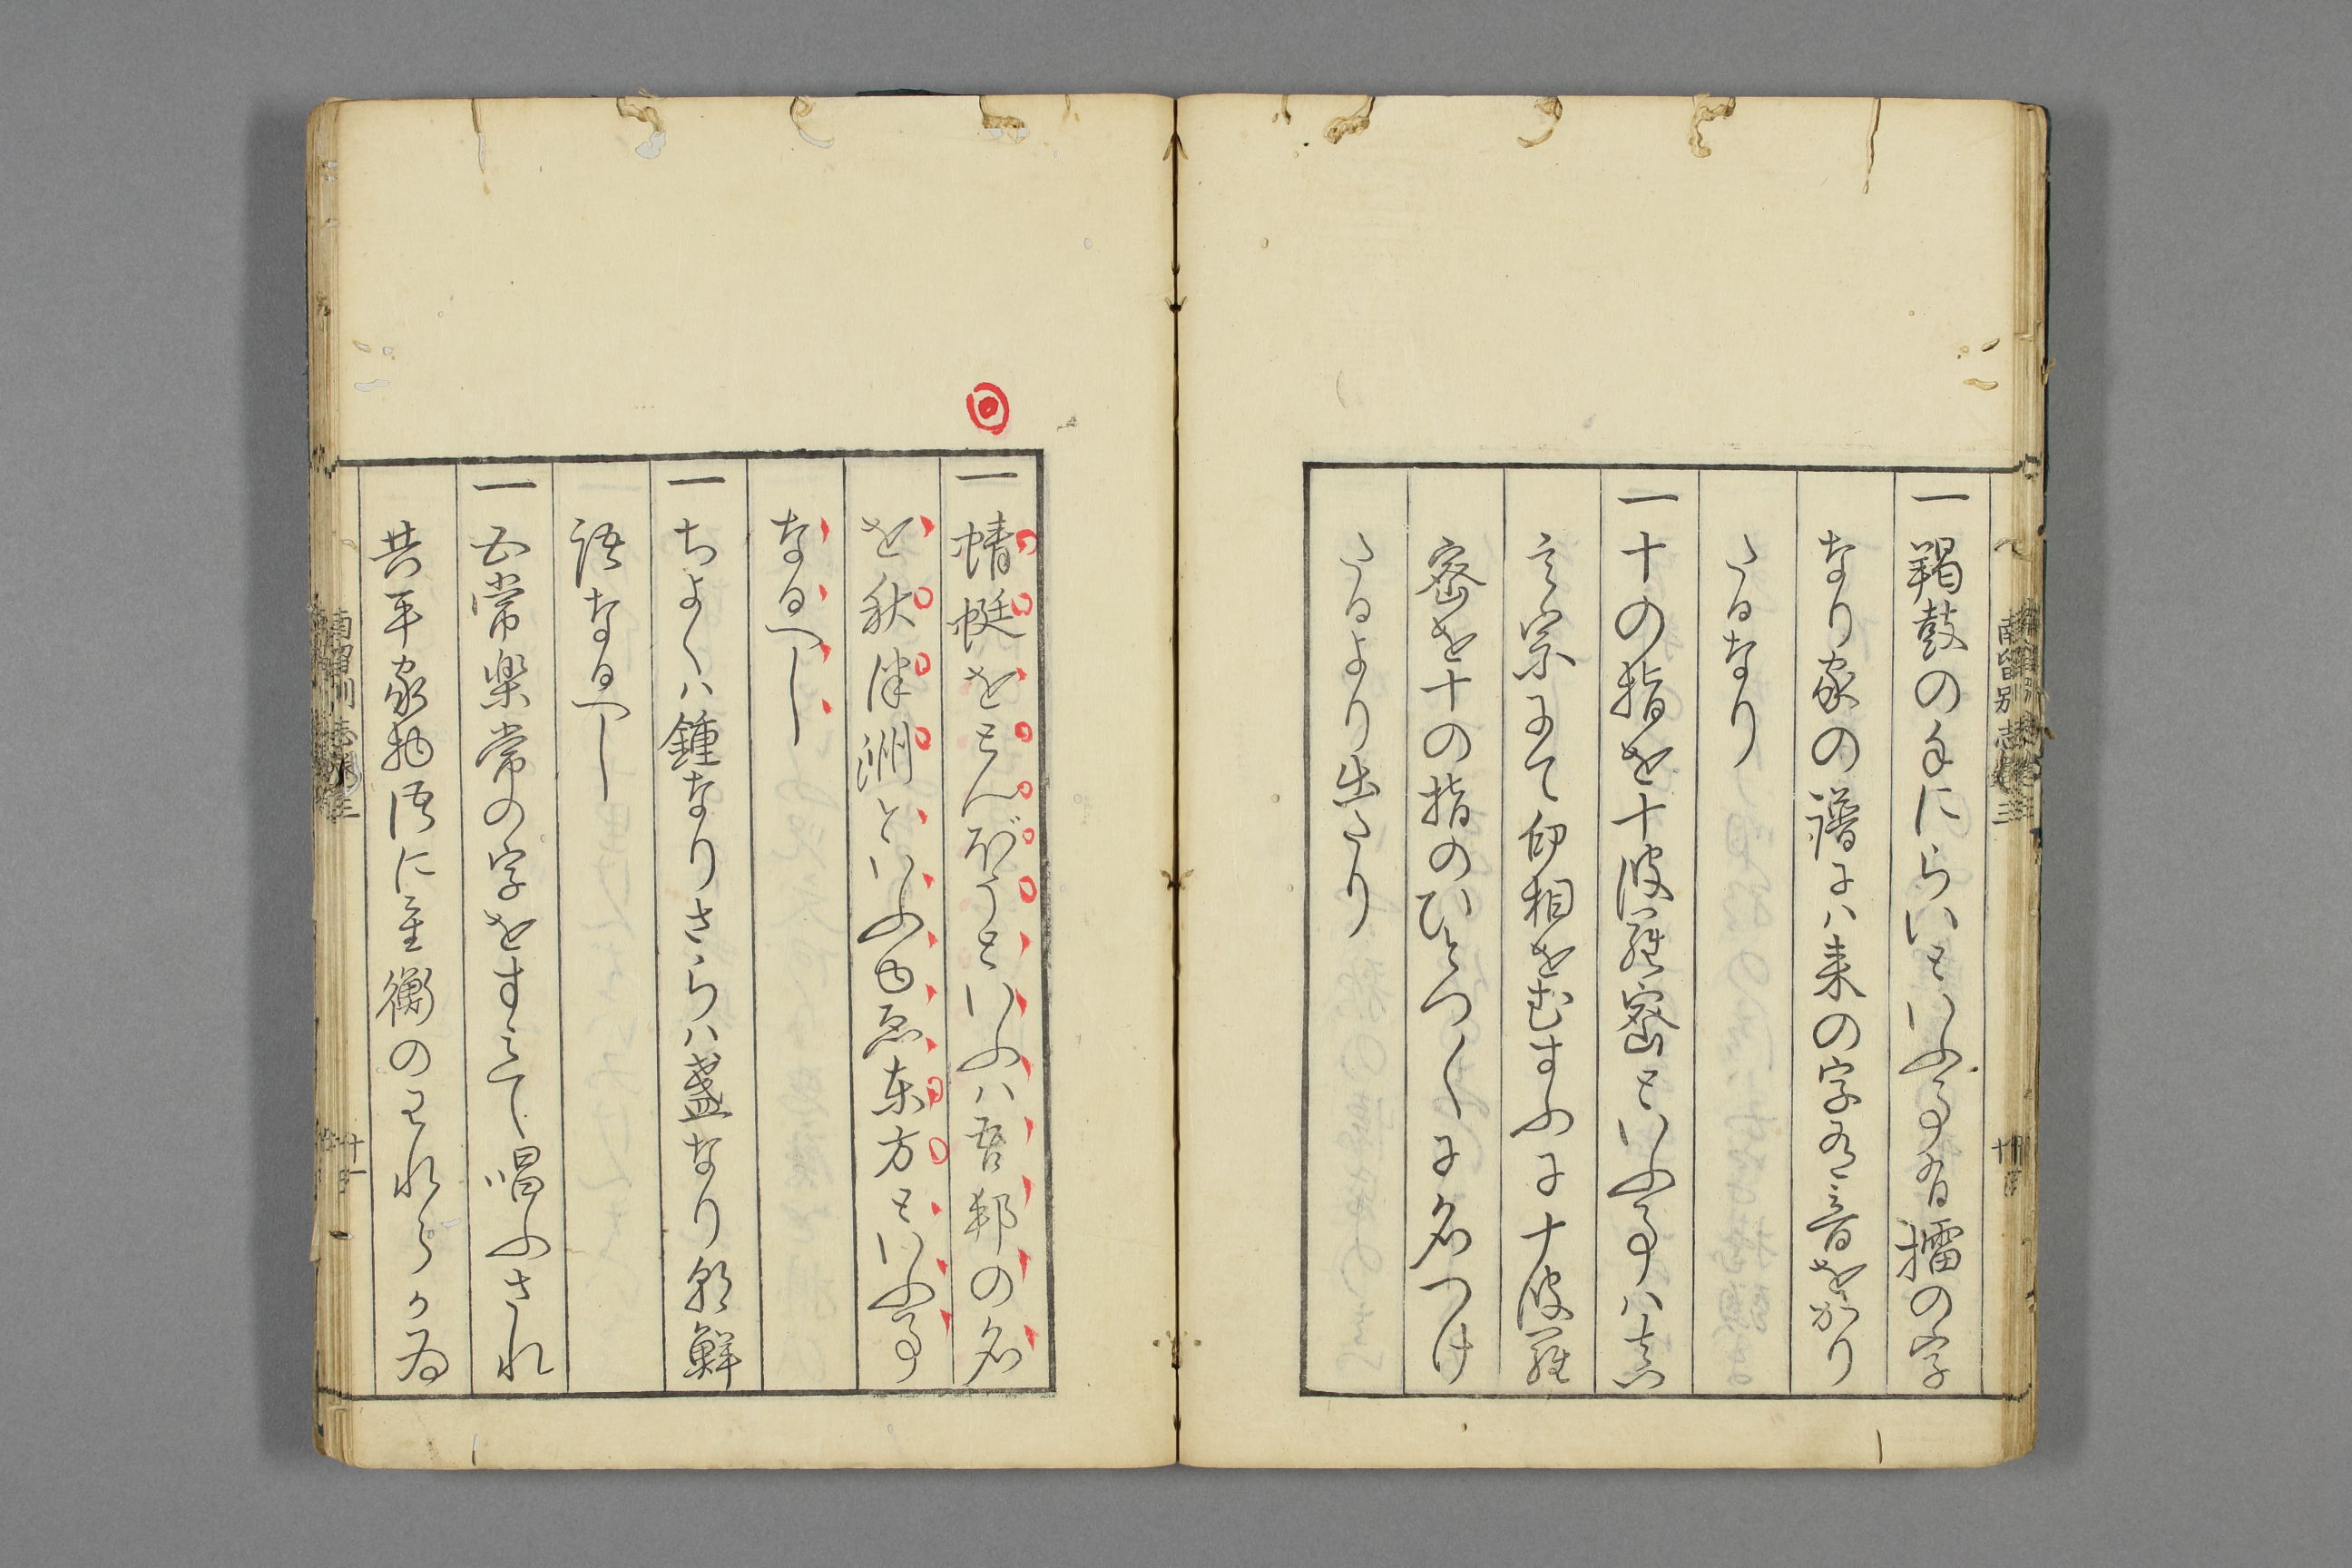 一羯鼓の手にらいといふ事有擂の字
なり家の譜には来の字を音をかり
たるなり
一十の指を十波羅密といふ事は真
言宗にて印相をむすふに十波羅
密を十の指のひとつ〱に名つけ
たるより出たり
一蜻蜓をとんばうといふは吾邦の名
を秋津洲といふ由ゑ東方といふ事
なるへし
一ちよくは鍾なりさらは盞なり朝鮮
語なるへし
一五常楽常の字をすみて唱ふされ
共平家物語に重衡のたはれ
南留別志 三
十一